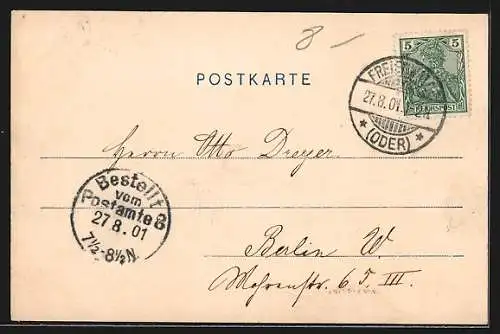 8 –
5 5
REICHSPOST
POSTKARTE
FREIENWALDE
27.8.01.
* (ODER) *
Herrn Otto Dreyer.
Bestellt
vom
Postamte 8
27 8.01
7½-8½N.
Berlin W
Mohrenstr. 65 III.